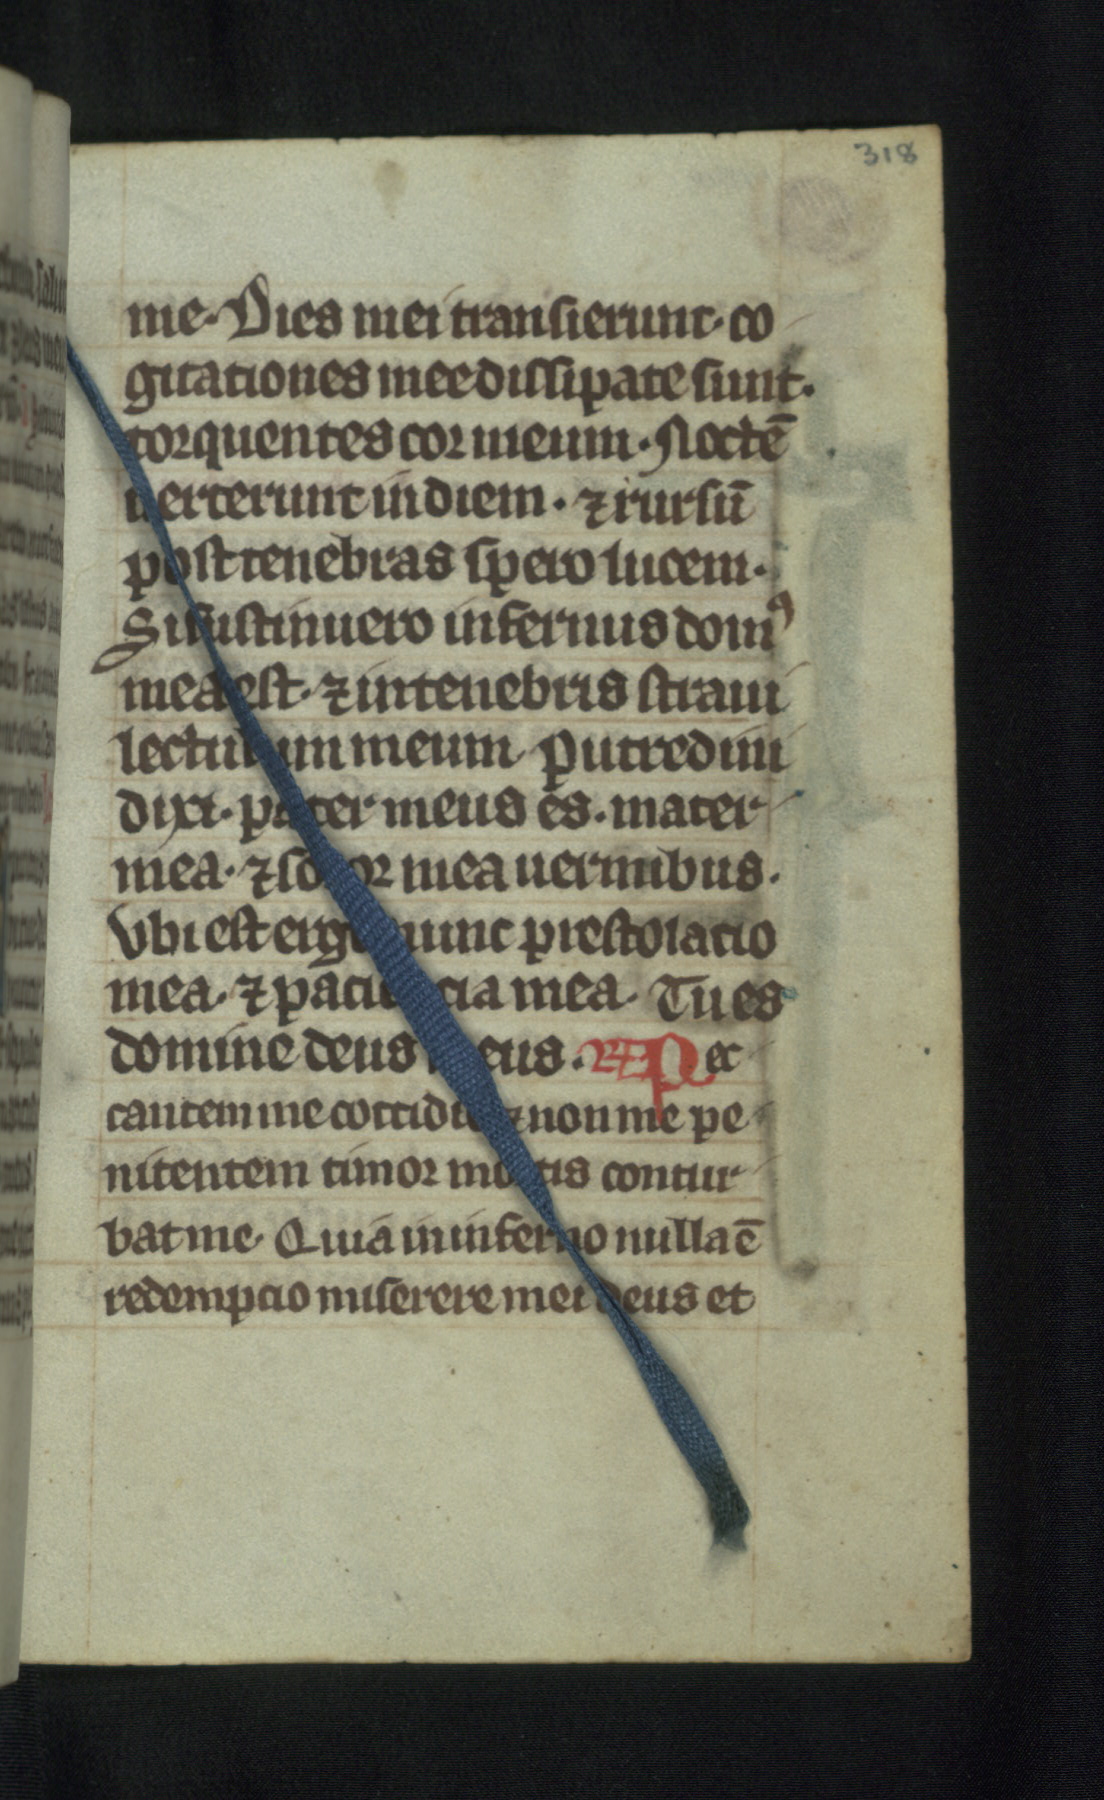 318
me. Dies mei transierunt. co
gitationes mee dissipate sunt.
torquentes cor meum. Noctē
uerterunt in diem. ⁊ rursū
post tenebras spero lucem.
Si sustinuero infernus domꝰ
mea est. ⁊ in tenebris straui
lectulum meum. Putredini
dixi. pater meus es. mater
mea. ⁊ soror mea uermibus.
Vbi est ergo nunc prestolacio
mea. ⁊ paciencia mea. Tu es
domine deus meus. RE Pec
cantem me cottidie ⁊ non me pe
nitentem timor mortis contur
bat me. Quia in inferno nulla ē
redempcio miserere mei deus et